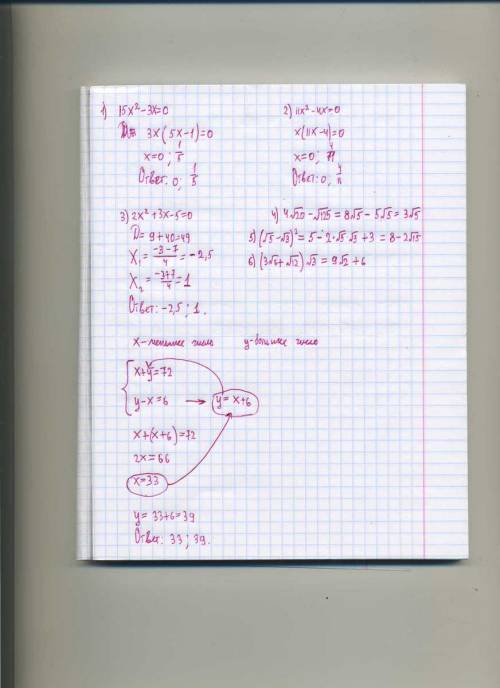 1) 15x² - 3x = 0
3x(5x-1) = 0
x=0; 1/5
Ответ: 0; 1/5
2) 11x² - 4x = 0
x(11x-4) = 0
x=0; 4/11
Ответ: 0; 4/11
3) 2x² + 3x - 5 = 0
D = 9 + 40 = 49
X₁ = (-3-7)/4 = -2,5
X₂ = (-3+7)/4 = 1
Ответ: -2,5; 1.
4) 4√20 - √125 = 8√5 - 5√5 = 3√5
5) (√5 - √3)² = 5 - 2·√5·√3 + 3 = 8 - 2√15
6) (3√6 + √12)·√3 = 9√2 + 6
x - меньшее число y - большее число
x+y=72
y-x=6 → y=x+6
x+(x+6)=72
2x=66
x=33
y=33+6=39
Ответ: 33; 39.